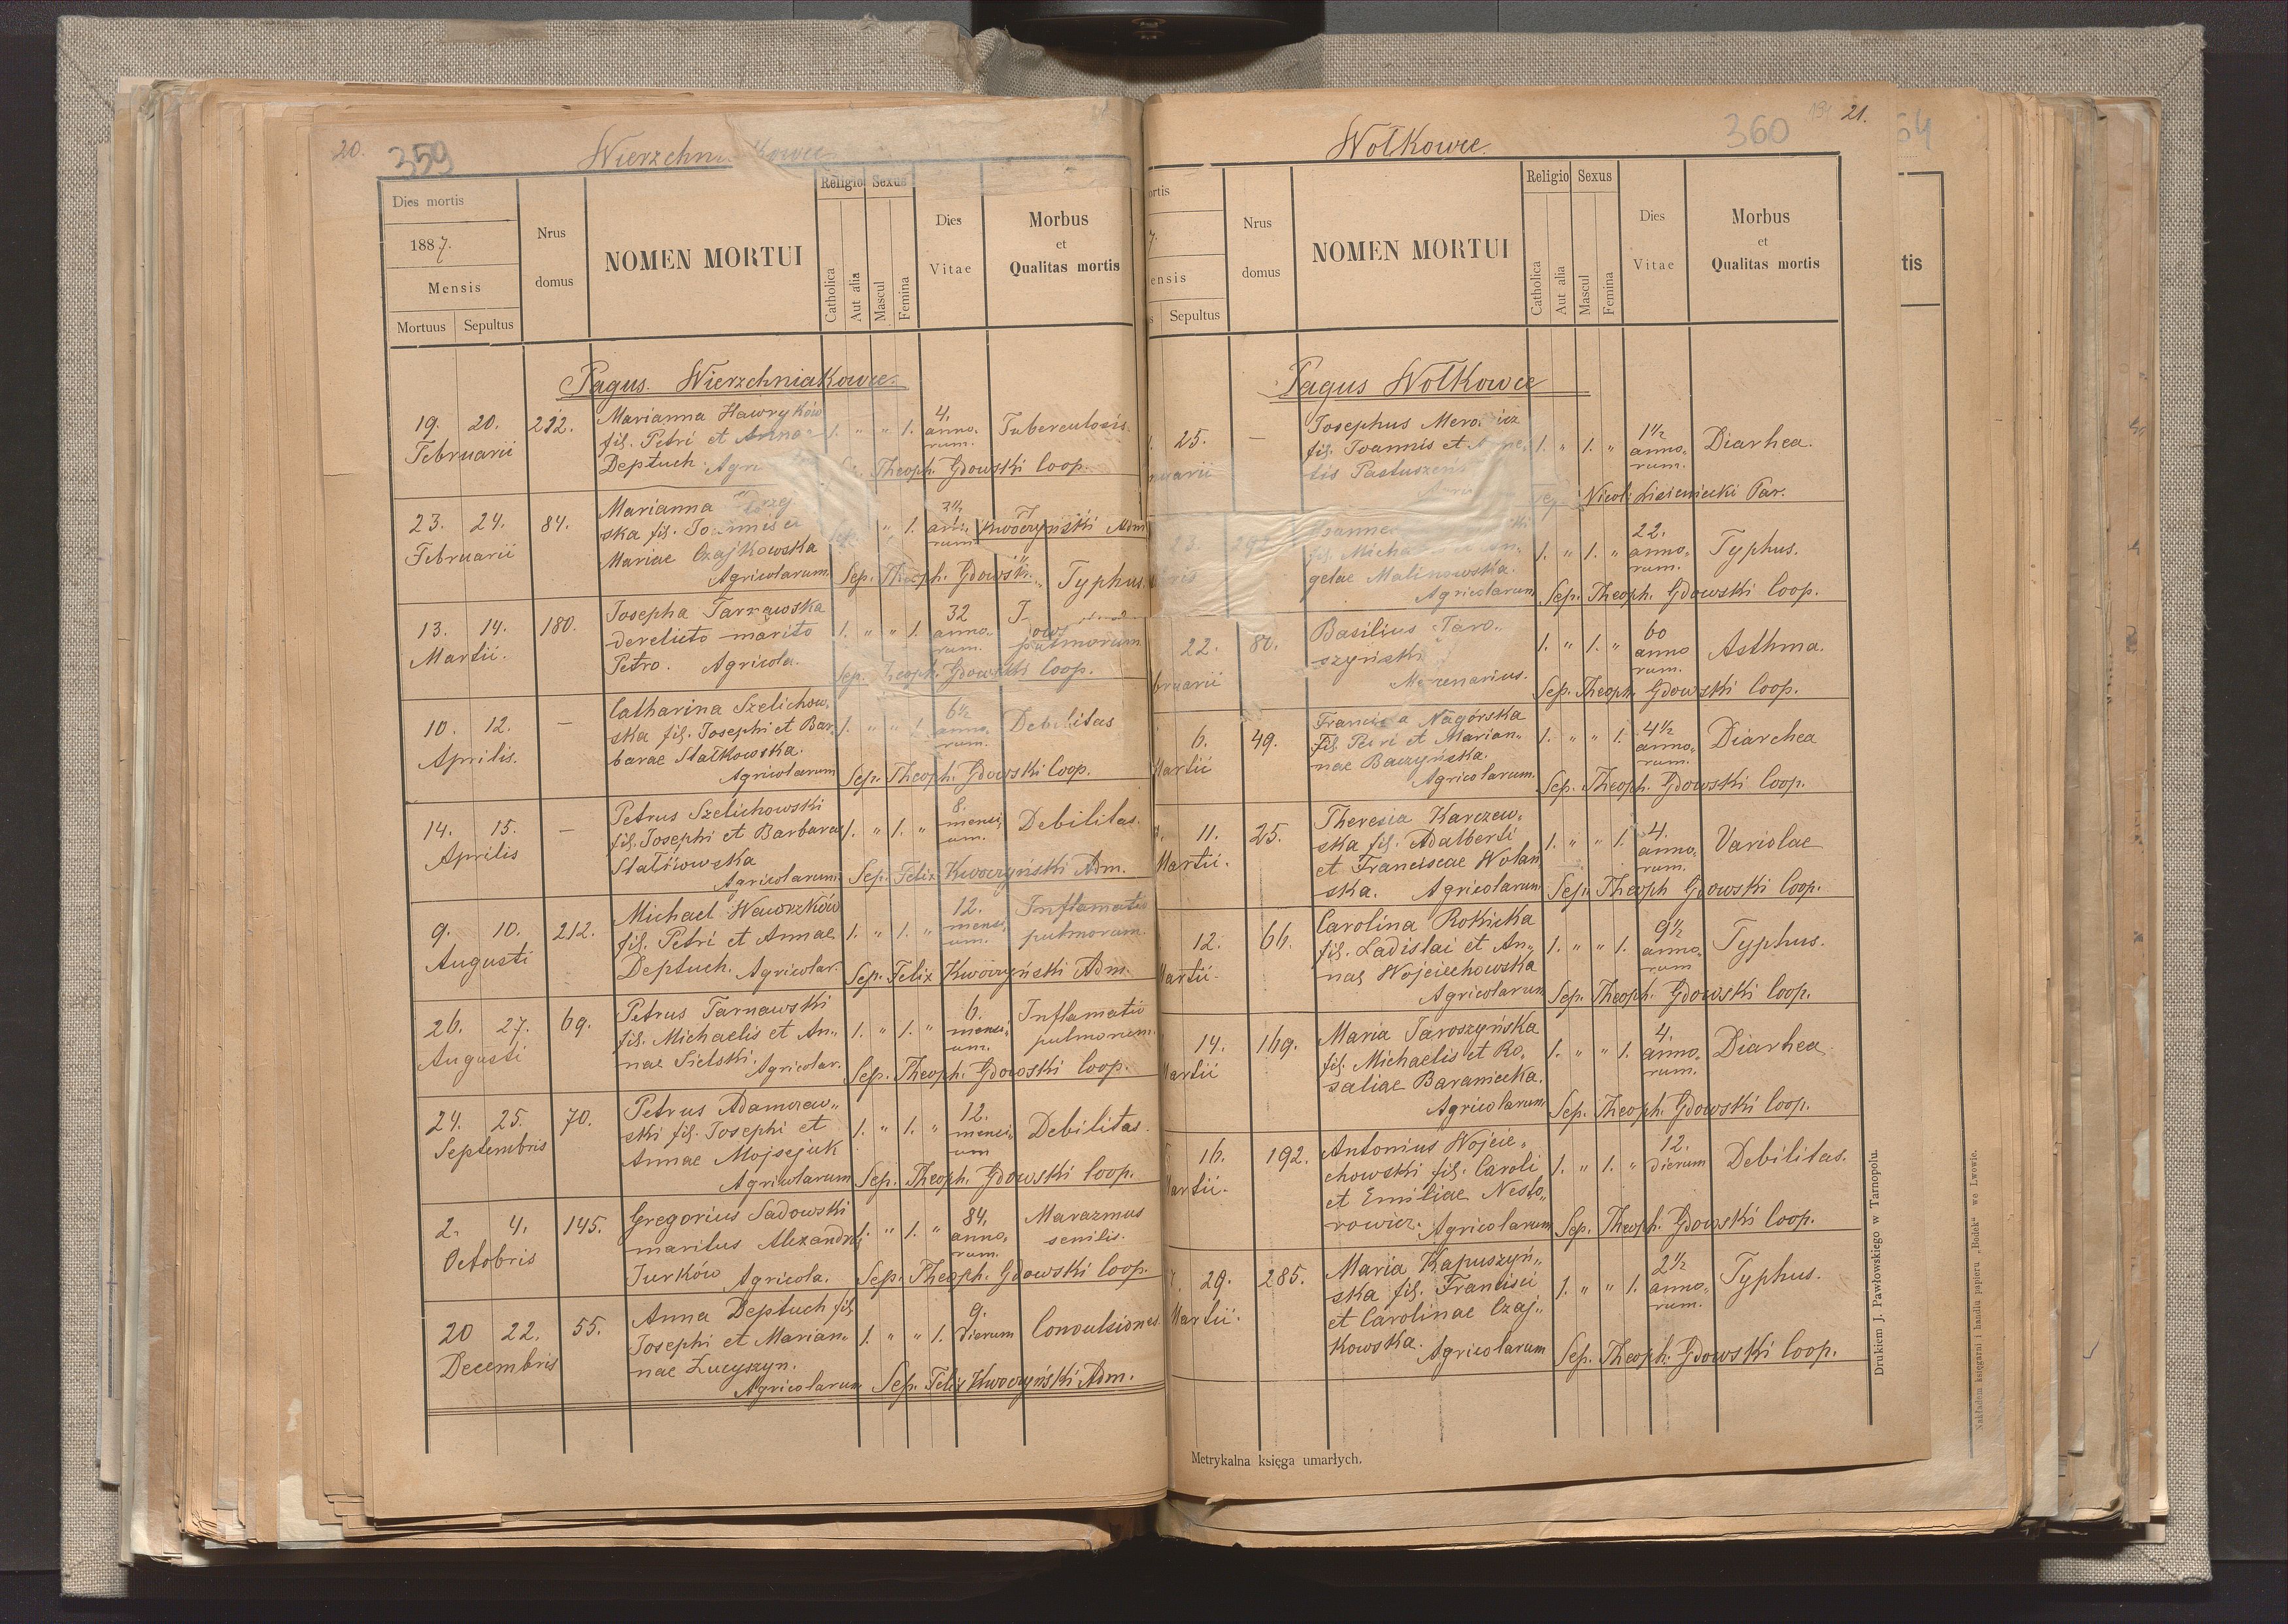 20.
359
Wierzchniakowce
Dies mortis
1887.
Mensis
Mortuus Sepultus
Nrus
domus
NOMEN MORTUI
Religio Sexus
Catholica
Aut alia
Mascul
Femina
Dies
Vitae
Morbus
et
Qualitas mortis
Pagus. Wierzchniakowce.
19. 20. 212. Marianna Hawryków 4.
Februarii fil. Petri et Annae 1. " " 1. anno- Tuberculosis.
rum.
Deptuch. Theoph. Gdowski Coop.
23. 24. 84. Marianna
Februarii ska fil. " 1. rum. Kwoczyński Adm
Mariae Czajkowska
Agricolarum. Sep. Theoph. Gdowski Typhus.
13. 14. 180. Josepha 32
Martii. derelicto marito 1. " " 1. anno- pulmorum
rum.
Petro. Agricola. Sep. Theoph. Gdowski Coop.
10. 12. — Catharina Szelichow- 6½
Aprilis. ska fil. Josephi et Bar- 1. " " 1. anno- Debilitas
rum.
barae Statkowska.
Agricolarum Sep. Theoph. Gdowski Coop.
14. 15. — Petrus Szelichowski 8.
Aprilis fil. Josephi et Barbarae 1. " 1. " mensi- Debilitas.
um.
Agricolarum. Sep. Felix Kwoczyński Adm.
9. 10. 212. Michael Wawrzków 12. Inflamatio
Augusti fil. Petri et Annae 1. " 1. " mensi- pulmorum.
um.
Deptuch. Agricolar. Sep. Felix Kwoczyński Adm.
26. 27. 69. Petrus Tarnawski 6. Inflamatio
Augusti fil. Michaelis et An- 1. " 1. " mensi- pulmorum.
um.
nae Sielski. Agricolar. Sep. Theoph. Gdowski Coop.
24. 25. 70. Petrus Adamczew- 12.
Septembris ski fil. Josephi et 1. " 1. " mensi- Debilitas.
um
Annae Mojsejuk
Agricolarum Sep. Theoph. Gdowski Coop.
2. 4. 145. Gregorius Sadowski 84. Marazmus
Octobris maritus Alexandri 1. " 1. " anno- senilis.
rum.
Jurków Agricola. Sep. Theoph. Gdowski Coop.
20 22. 55. Anna Deptuch fil. 9.
Decembris Josephi et Marian- 1. " " 1. dierum Convulsiones
nae Łucyszyn.
Agricolarum Sep. Felix Kwoczyński Adm.
21.
360
Wołkowce
ortis
7.
ensis
s Sepultus
Nrus
domus
NOMEN MORTUI
Religio Sexus
Catholica
Aut alia
Mascul
Femina
Dies
Vitae
Morbus
et
Qualitas mortis
Pagus Wołkowce
25. — Josephus 1½
nuarii fil. Joannis et 1. " 1. " anno- Diarhea.
rum.
Sep. Nicol. Lisieniecki Par.
23. 22.
fil. 1. " 1. " anno- Typhus.
rum.
gelae Malinowska.
Agricolarum Sep. Theoph. Gdowski Coop.
22. 80. Basilius Jaro- 60
bruarii szyński 1. " 1. " anno Asthma.
rum.
Mercenarius. Sep. Theoph. Gdowski Coop.
6. 49. Francisca Nagórska 4½
Martii fil. Petri et Marian- 1. " " 1. anno- Diarchea
rum.
nae Baczyńska.
Agricolarum. Sep. Theoph. Gdowski Coop.
11. 25. Theresia Karczew- 4.
Martii. ska fil. Adalberti 1. " " 1. anno- Variolae
rum.
et Franciscae Wolań
ska. Agricolarum Sep. Theoph Gdowski Coop.
12. 66. Carolina Rokicka 9½
Martii. fil. Ladislai et An- 1. " " 1. anno- Typhus.
rum
nae Wojciechowska
Agricolarum Sep. Theoph. Gdowski Coop.
14. 169. Maria Jaroszyńska 4.
Martii fil. Michaelis et Ro- 1. " " 1. anno- Diarhea
rum.
saliae Baraniecka.
Agricolarum Sep. Theoph. Gdowski Coop.
16. 192. Antonius Wojcie- 12.
Martii. chowski fil. Caroli 1. " 1. " dierum Debilitas.
et Emiliae Nesto-
rowicz. Agricolarum Sep. Theoph. Gdowski Coop.
29. 285. Maria Kapuszyń- 2½
Martii. ska fil. Francisci 1. " " 1. anno- Typhus.
rum.
et Carolinae Czaj-
kowska. Agricolarum Sep. Theoph. Gdowski Coop.
Metrykalna księga umarłych.
Drukiem J. Pawłowskiego w Tarnopolu.
64
tis
Nakładem księgarni i handlu papieru „Bodek" we Lwowie.